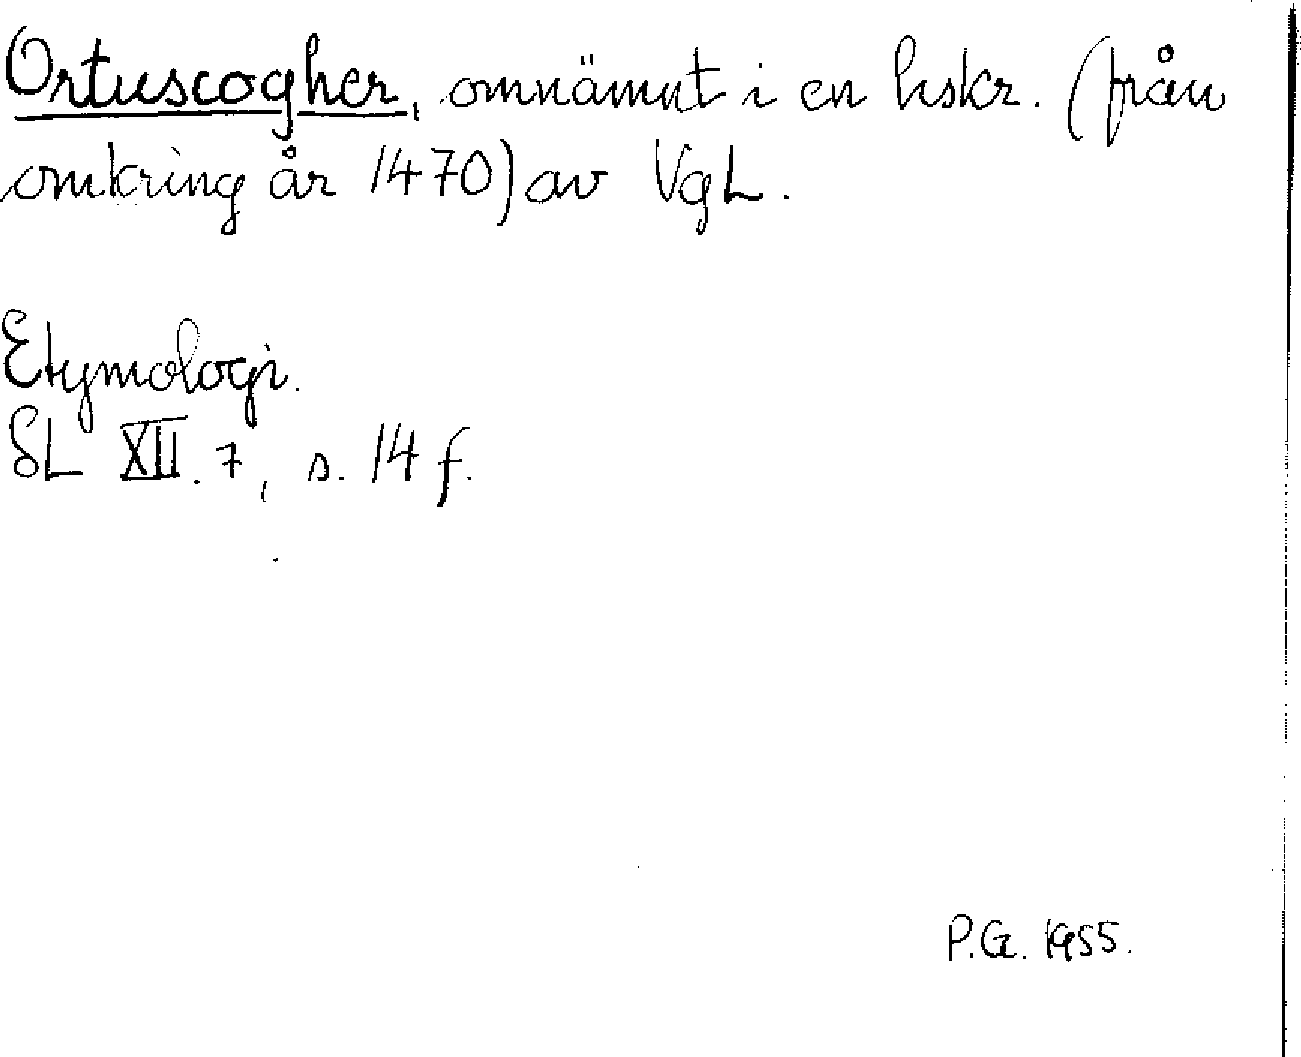 Ortuscogher, omnämnt i en hskr. (från
omkring år 1470) av VgL.
Etymologi.
SL XII.7, s. 14 f.
P.G. 1955.